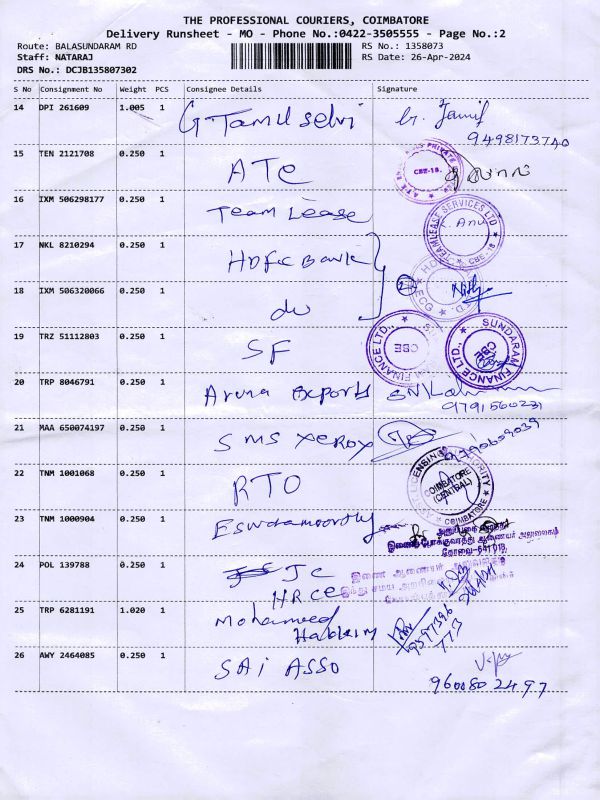 THE PROFESSIONAL COURIERS, COIMBATORE
Delivery Runsheet - MO - Phone No.:0422-3505555 - Page No.:2
Route: BALASUNDARAM RD RS No.: 1358073
Staff: NATARAJ RS Date: 26-Apr-2024
DRS No.: DCJB135807302
S No Consignment No Weight PCS Consignee Details Signature
14 DPI 261609 1.005 1 G Tamilselvi G. Tamil
9498173740
15 TEN 2121708 0.250 1 ATC CBE-18.
16 IXM 506298177 0.250 1 Team Lease TEAMLEASE SERVICES LTD CBE-18
17 NKL 8210294 0.250 1 HDFC Bank
18 IXM 506320066 0.250 1 do
19 TRZ 51112803 0.250 1 SF FINANCE LTD., CBE SUNDARAM FINANCE LTD., CBE
20 TRP 8046791 0.250 1 Aruna Exports
9791560231
21 MAA 650074197 0.250 1 SMS Xerox
22 TNM 1001068 0.250 1 RTO LICENSING AUTHORITY COIMBATORE (CENTRAL) COIMBATORE
23 TNM 1000904 0.250 1 Eswaramoorthy
24 POL 139788 0.250 1 JC
HRCE
25 TRP 6281191 1.020 1 Mohameed
Hakkim
26 AWY 2464085 0.250 1 SAI ASSO
9600802497